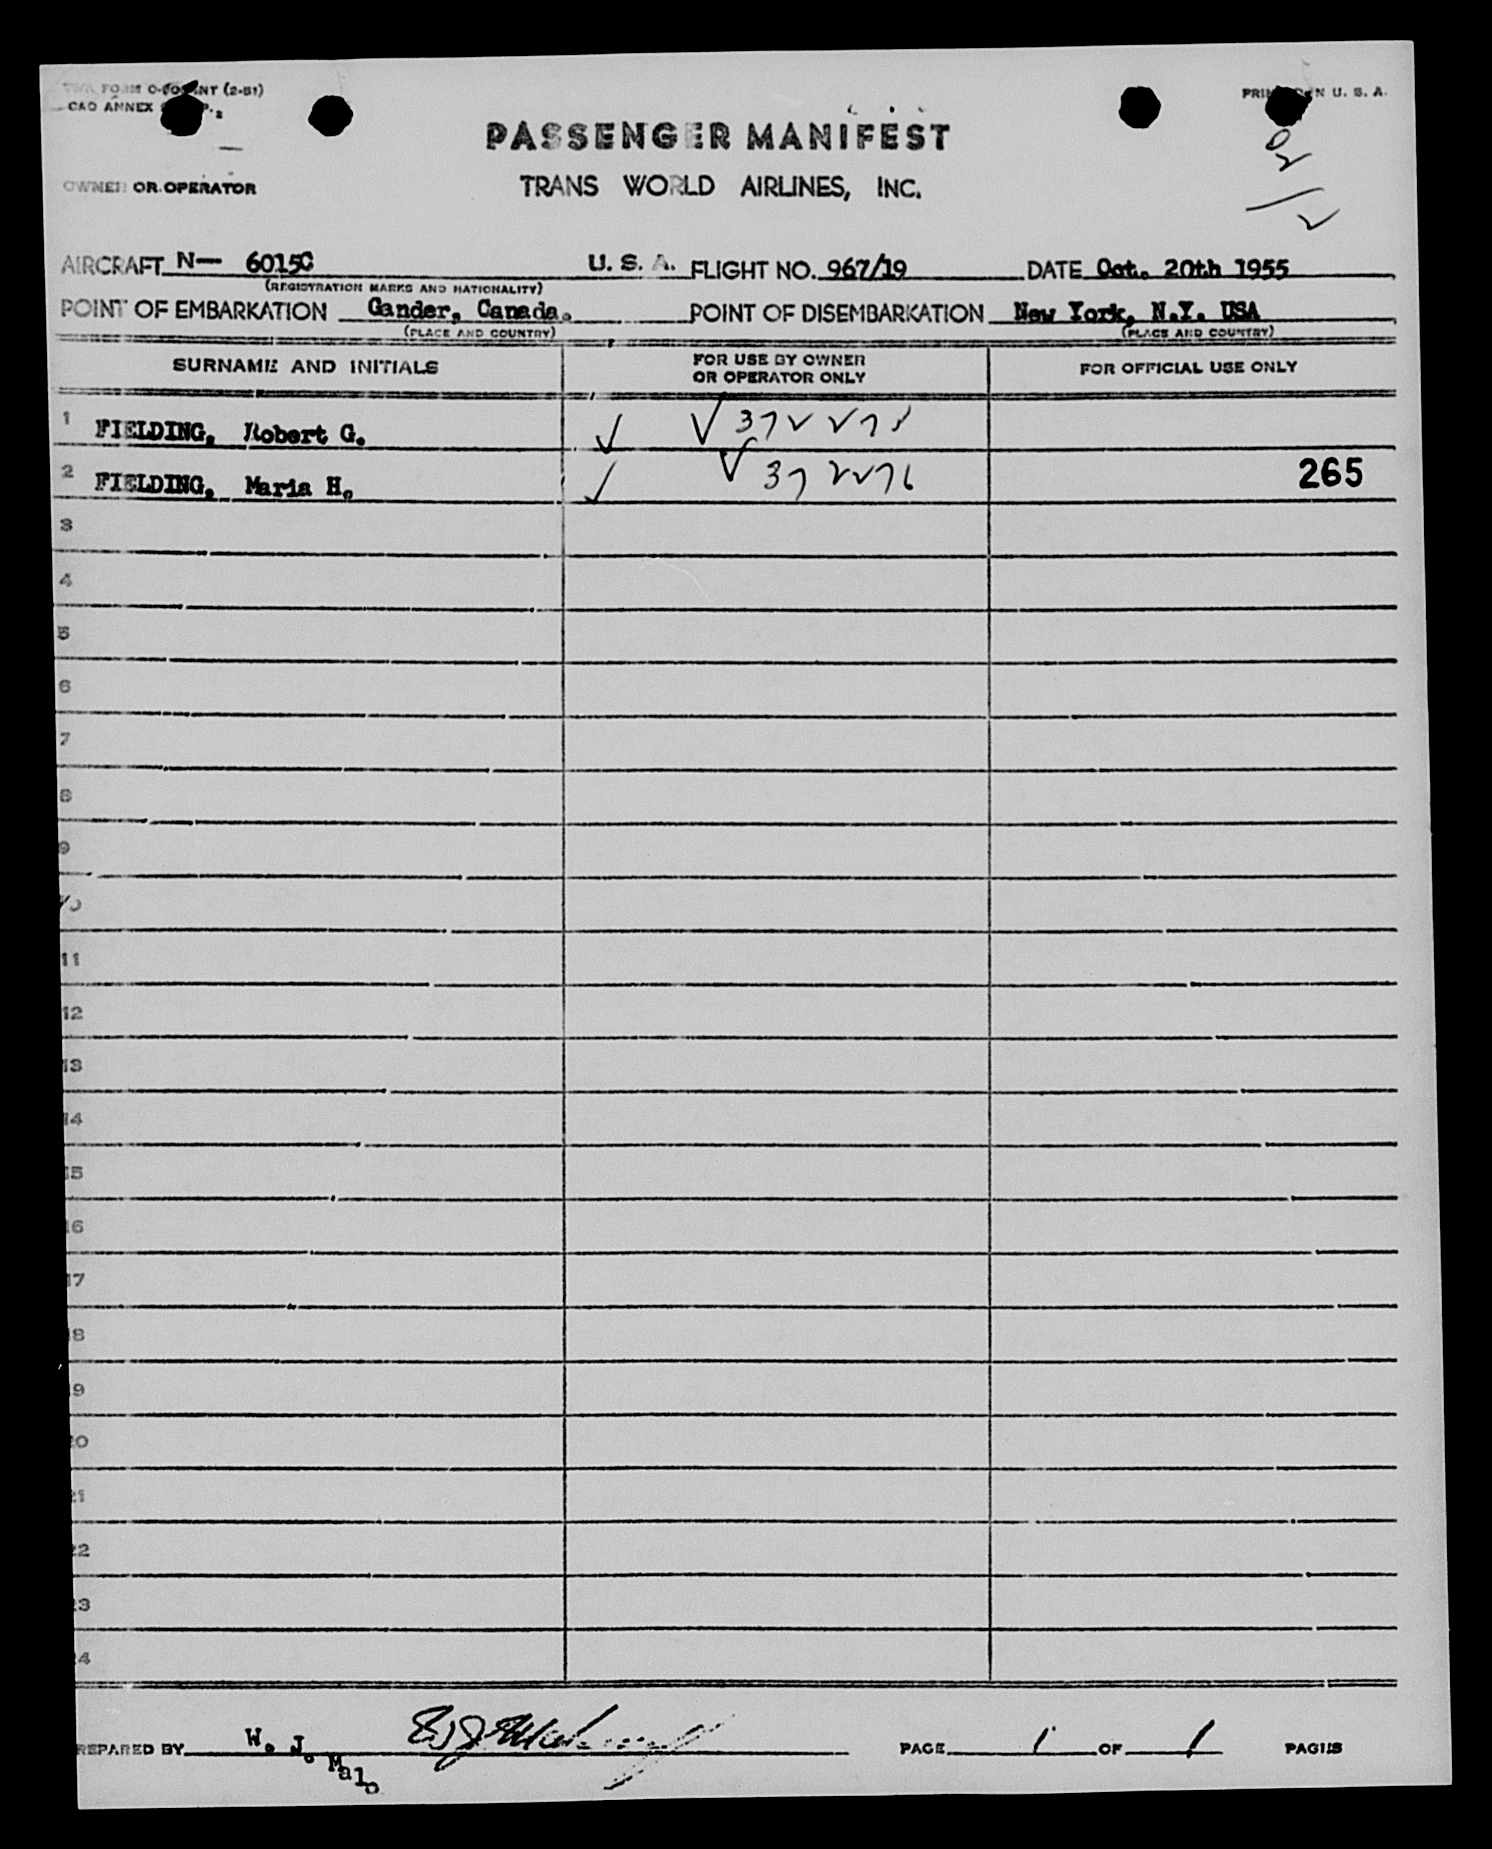 TWA FORM O-
NT (2-51)
PRINTED IN U. S. A.
CAO ANNEX
PASSENGER MANIFEST
OWNER OR OPERATOR
TRANS WORLD AIRLINES, INC.
AIRCRAFT N— 6015C U. S. A. FLIGHT NO. 967/19 DATE Oct. 20th 1955
(REGISTRATION MARKS AND NATIONALITY)
POINT OF EMBARKATION Gander, Canada. POINT OF DISEMBARKATION New York, N.Y. USA
(PLACE AND COUNTRY) (PLACE AND COUNTRY)
SURNAME AND INITIALS FOR USE BY OWNER OR OPERATOR ONLY FOR OFFICIAL USE ONLY
1 FIELDING, Robert G.
2 FIELDING, Maria H. 265
3
4
5
6
7
8
9
10
11
12
13
14
15
16
17
18
19
20
21
22
23
24
PREPARED BY W. J. Malo PAGE 1 OF 1 PAGES